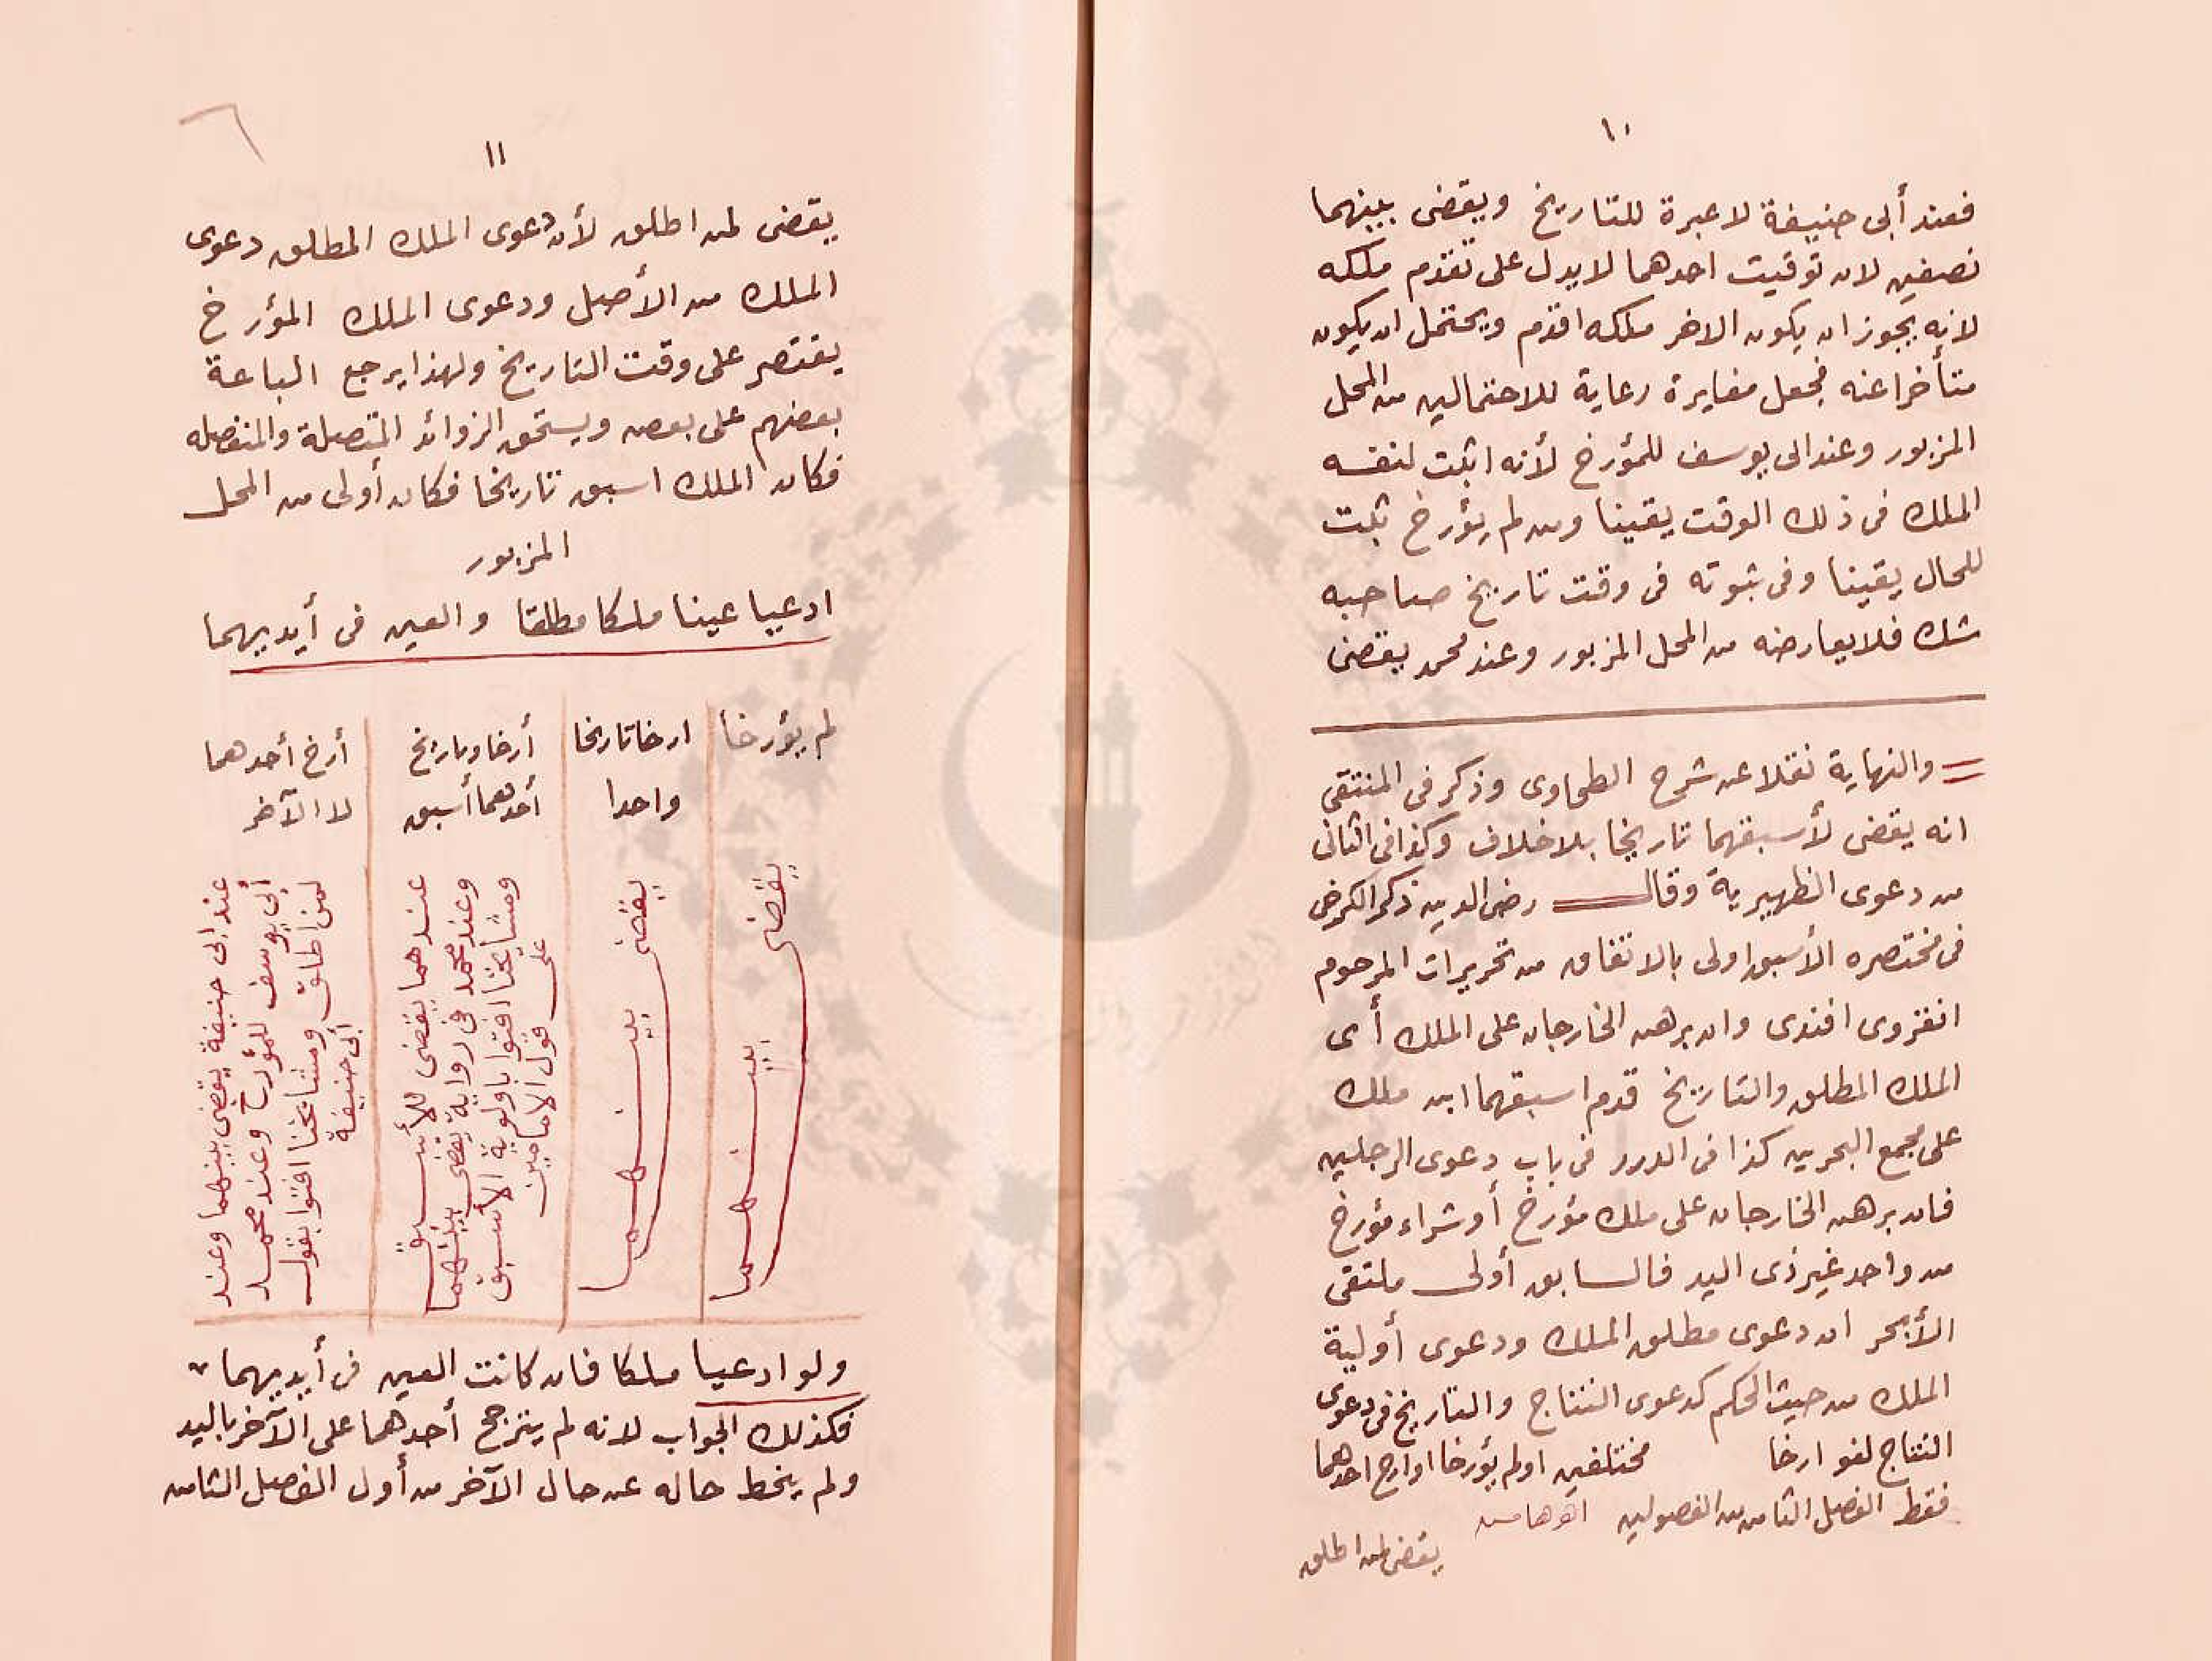 ١٠
فعند أبى حنيفة لا عبرة للتاريخ ويقضى بينهما
نصفين لان توقيت احدهما لا يدل على تقدم ملكه
لانه يجوز ان يكون الاخر ملكه اقدم ويحتمل ان يكون
متأخرا عنه فجعل مغايرة رعاية للاحتمالين من المحل
المزبور وعند ابى يوسف للمؤرخ لأنه اثبت لنفسه
الملك فى ذلك الوقت يقينا ومن لم يؤرخ ثبت
للحال يقينا وفى ثبوته فى وقت تاريخ صاحبه
شك فلا يعارضه من المحل المزبور وعند محمد يقضى
= والنهاية نقلا عن شرح الطحاوى وذكر فى المنتقى
انه يقضى لأسبقهما تاريخا بلا خلاف وكذا فى الثانى
من دعوى الظهيرية وقال رضى الدين ذكر الكرخى
فى مختصره الأسبق اولى بالاتفاق من تحريرات المرحوم
انقروى افندى وان برهن الخارجان على الملك أى
الملك المطلق والتاريخ قدم اسبقهما ابن ملك
على مجمع البحرين كذا فى الدرر فى باب دعوى الرجلين
فان برهن الخارجان على ملك مؤرخ أو شراء مؤرخ
من واحد غير ذى اليد فالسابق أولى ملتقى
الأبحر ان دعوى مطلق الملك ودعوى أولية
الملك من حيث الحكم كدعوى النتاج والتاريخ فى دعوى
النتاج لغو ارخا مختلفين او لم يؤرخا او ارخ احدهما
فقط الفصل الثامن من الفصولين اهـ هامش
يقضى لمن اطلق
١١
يقضى لمن اطلق لأن دعوى الملك المطلق دعوى
الملك من الأصل ودعوى الملك المؤرخ
يقتصر على وقت التاريخ ولهذا يرجع الباعة
بعضهم على بعض ويستحق الزوائد المتصلة والمنفصله
فكان الملك اسبق تاريخا فكان أولى من المحل
المزبور
ادعيا عينا ملكا مطلقا والعين فى أيديهما
لم يؤرخا
يقضى بينهما
ارخا تاريخا
واحدا
يقضى بينهما
أرخا وتاريخ
أحدهما أسبق
عندهما يقضى للأسبق
وعند محمد فى رواية يقضى بينهما
ومشايخنا افتوا باولوية الأسبق
على قول الامامين
أرخ أحدهما
لا الآخر
عند ابى حنيفة يقضى بينهما وعند
أبى يوسف للمؤرخ وعند محمد
لمن اطلق ومشايخنا افتوا بقول
أبى حنيفة
ولو ادعيا ملكا فان كانت العين فى أيديهما
فكذلك الجواب لانه لم يترجح أحدهما على الآخر باليد
ولم ينحط حاله عن حال الآخر من أول الفصل الثامن